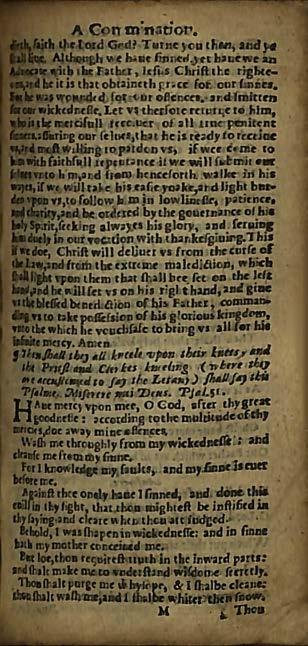 A Commination.
dieth, saith the Lord God? Turne you then, and ye
shall liue. Although we haue sinned, yet haue we an
Aduocate with the Father, Iesus Christ the righte-
ous, and he it is that obtaineth grace for our sinnes.
For he was wounded for our offences, and smitten
for our wickednesse. Let vs therfore returne to him,
who is the mercifull receiuer of all true penitent
sinners, assuring our selues, that he is ready to receiue
vs, and most willing to pardon vs, if wee come to
him with faithfull repentance if we will submit our
selues vnto him, and from henceforth walke in his
wayes, if we will take his easie yoake, and light bur-
den vpon vs, to follow him in lowlinesse, patience,
and charity, and be ordered by the gouernance of his
holy Spirit, seeking alwayes his glory, and seruing
him duely in our vocation with thankesgiuing. This
if we doe, Christ will deliuer vs from the curse of
the Law, and from the extreme malediction, which
shall light vpon them that shall bee set on the left
hand, and he will set vs on his right hand, and giue
vs the blessed benediction of his Father, comman-
ding vs to take possession of his glorious kingdom,
vnto the which he vouchsafe to bring vs all for his
infinite mercy. Amen
¶ Then shall they all kneele vpon their knees, and
the Priest and Clerkes kneeling (where they
are accustomed to say the Letany) shall say this
Psalme, Miserere mei Deus. Psal. 51.
HAue mercy vpon mee, O God, after thy great
goodnesse: according to the multitude of thy
mercies, doe away mine offences.
Wash me throughly from my wickednesse: and
cleanse me from my sinne.
For I knowledge my faults, and my sinne is euer
before me.
Against thee onely haue I sinned, and done this
euill in thy sight, that thou mightest be iustified in
thy saying, and cleare when thou art iudged.
Behold, I was shapen in wickednesse: and in sinne
hath my mother conceiued me.
But loe, thou requirest truth in the inward parts:
and shalt make me to vnderstand wisdome secretly.
Thou shalt purge me with hysope, & I shalbe cleane:
thou shalt wash me, and I shalbe whiter then snow.
M Thou